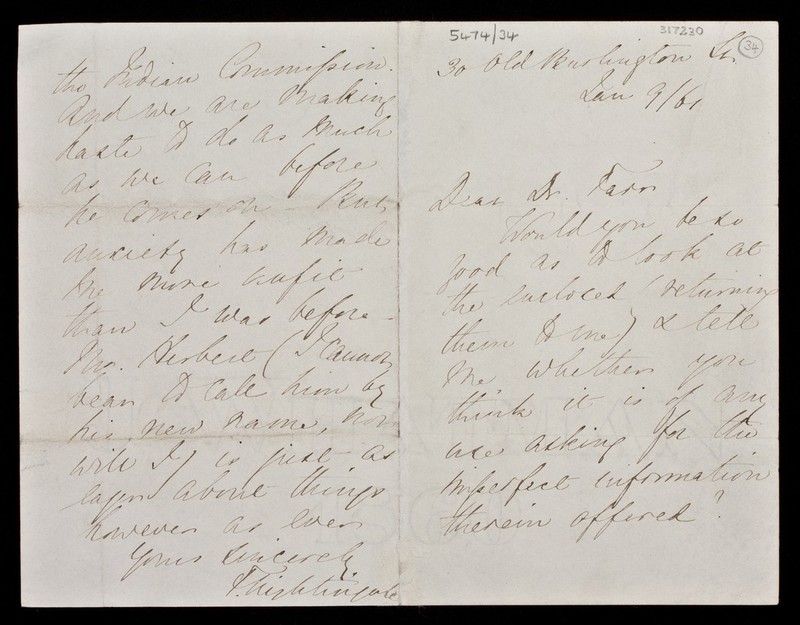 5474/34
317230
34
30 Old Burlington St.
Jan 9/61
Dear Dr. Farr
Would you be so
good as to look at
the enclosed (returning
them to me) & tell
me whether you
think it is of any
use asking for the
imperfect information
therein offered?
the Indian Commission.
And we are making
haste to do as much
as we can before
he comes on - But
anxiety has made
me more unfit
than I was before -
Mr. Herbert (I cannot
bear to call him by
his new name, nor
will I) is just as
eager about things
however as ever
Yours sincerely
F. Nightingale